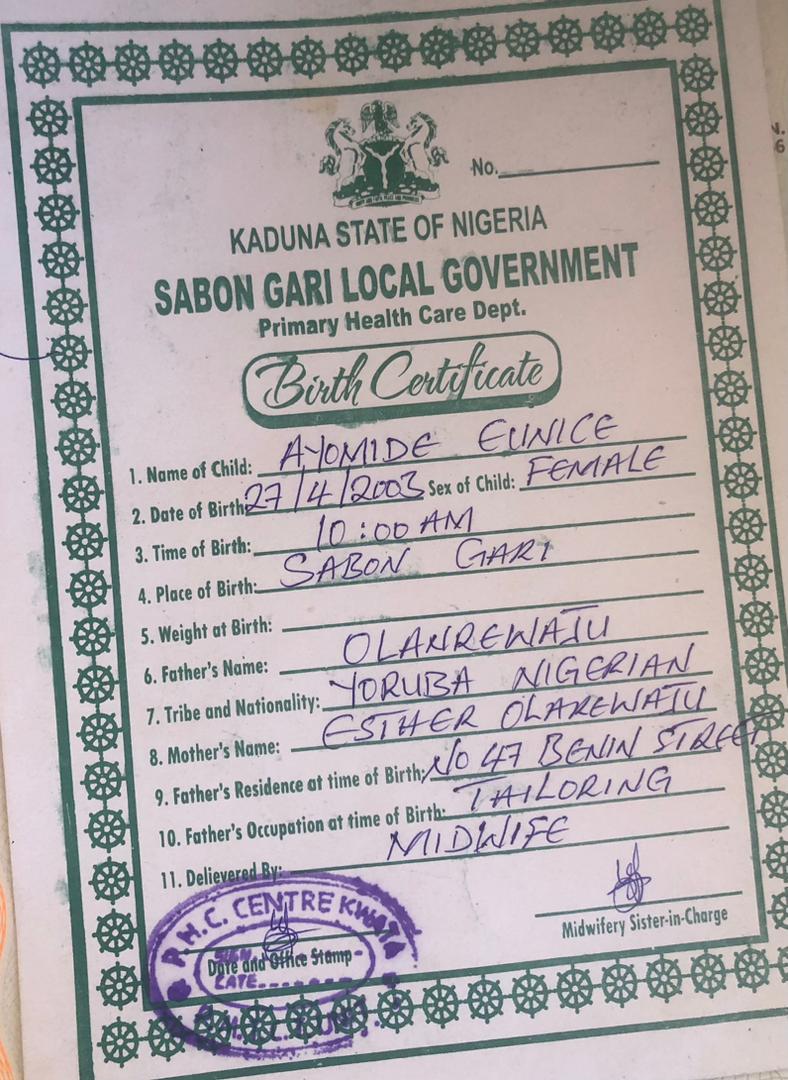 No.
KADUNA STATE OF NIGERIA
SABON GARI LOCAL GOVERNMENT
Primary Health Care Dept.
Birth Certificate
1. Name of Child: AYOMIDE EUNICE
2. Date of Birth: 27/4/2003 Sex of Child: FEMALE
3. Time of Birth: 10:00 AM
4. Place of Birth: SABON GARI
5. Weight at Birth:
6. Father's Name: OLANREWAJU
7. Tribe and Nationality: YORUBA NIGERIAN
8. Mother's Name: ESTHER OLAREWAJU
9. Father's Residence at time of Birth; NO 47 BENIN STREET
10. Father's Occupation at time of Birth: TAILORING
11. Delievered By: MIDWIFE
Midwifery Sister-in-Charge
P.H.C. CENTRE KWATA
SIGN
Date and Office Stamp
DATE